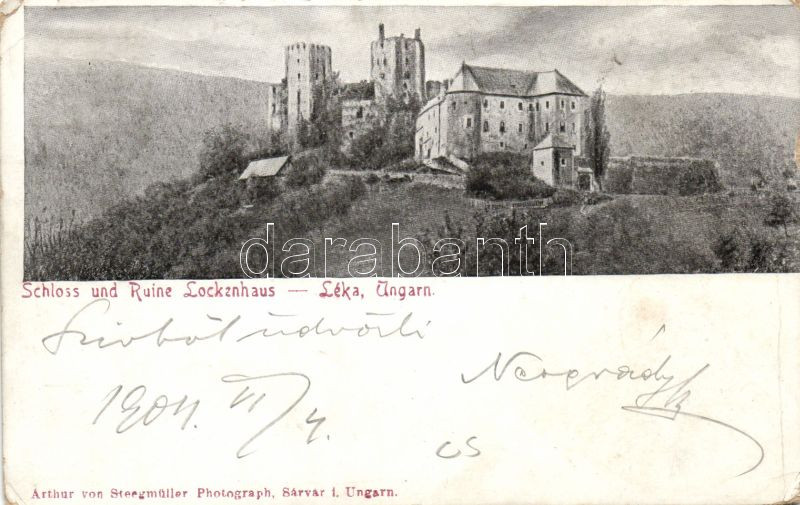 darabanth
Schloss und Ruine Lockenhaus — Léka, Ungarn.
Szivből üdvözli
Neogrády
1904. VI/4.
CS
Arthur von Steegmüller Photograph, Sárvár i. Ungarn.